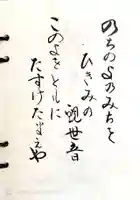 のちのよのみちを
ひきみの
観世音
このよをともに
たすけたまえや